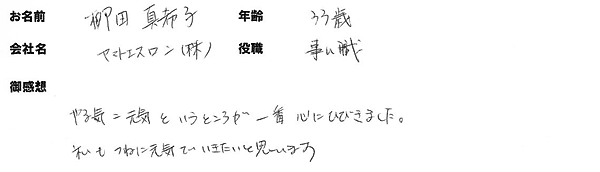 お名前 柳田 真希子 年齢 33歳
会社名 ヤマトエスロン(株) 役職 事ム職
御感想
やる気=元気というところが一番心にひびきました。
私もつねに元気でいきたいと思います